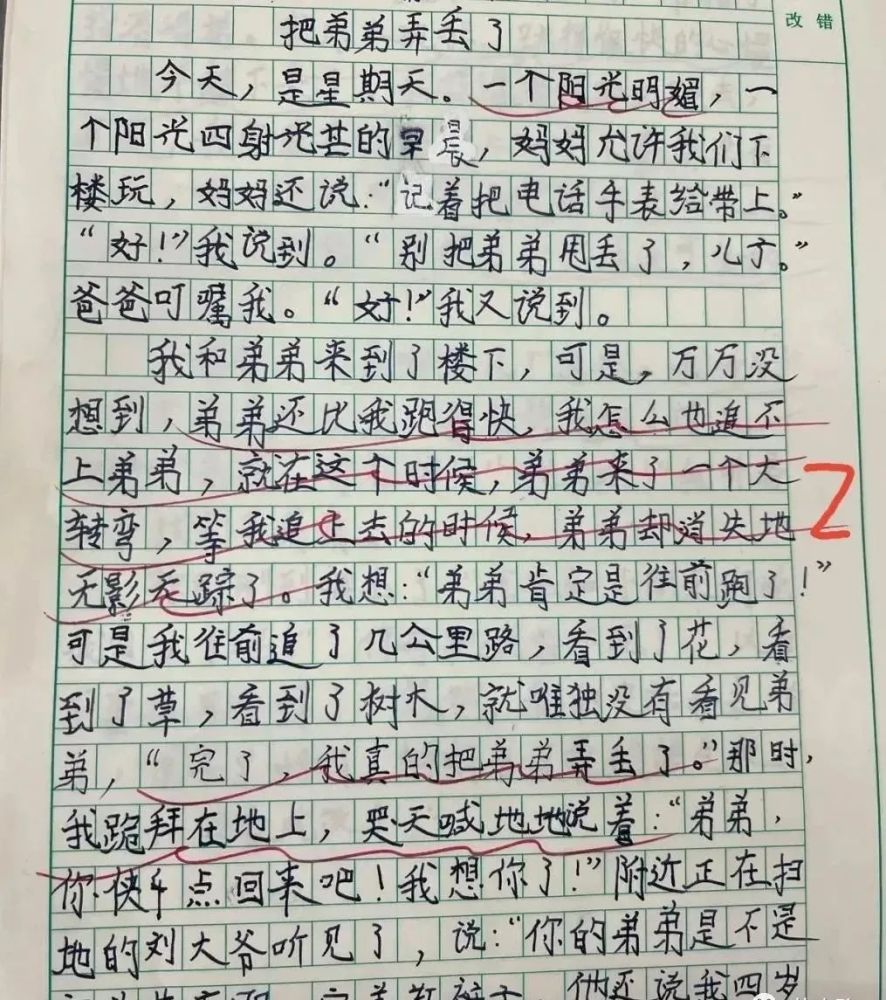 改错
把弟弟弄丢了
今天，是星期天。一个阳光明媚，一
个阳光四射光芒的早晨，妈妈允许我们下
楼玩，妈妈还说：“记着把电话手表给带上。”
“好！”我说到。“别把弟弟甩丢了，儿子。”
爸爸叮嘱我。“好！”我又说到。
我和弟弟来到了楼下，可是，万万没
想到，弟弟还比我跑得快，我怎么也追不
上弟弟，就在这个时候，弟弟来了一个大
转弯，等我追上去的时候，弟弟却消失地
无影无踪了。我想：“弟弟肯定是往前跑了！”
可是我往前追了几公里路，看到了花，看
到了草，看到了树木，就唯独没有看见弟
弟，“完了，我真的把弟弟弄丢了。”那时，
我跪拜在地上，哭天喊地地说着：“弟弟，
你快点回来吧！我想你了！”附近正在扫
地的刘大爷听见了，说：“你的弟弟是不是
他还说我四岁